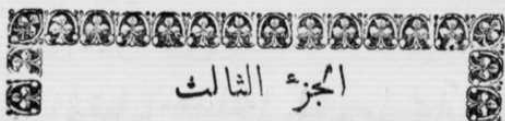 الجزء الثالث